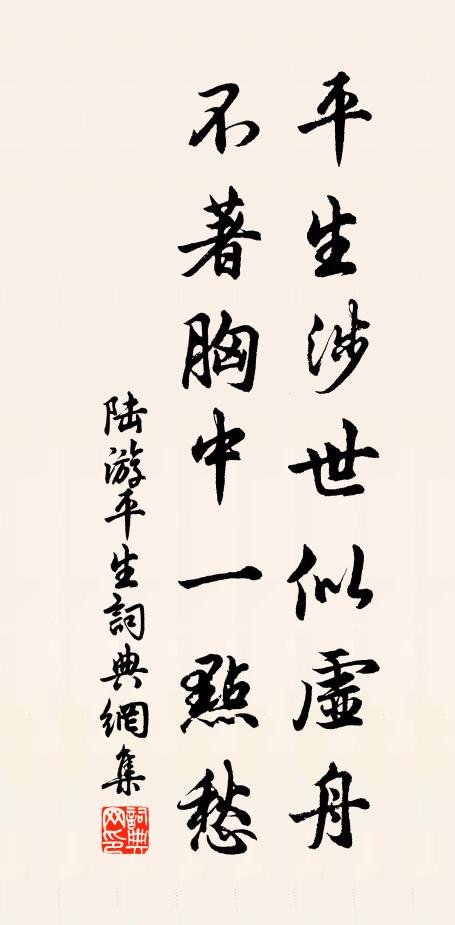 平生涉世似虛舟
不著胸中一點愁
陆游平生詞典網集
詞典網印